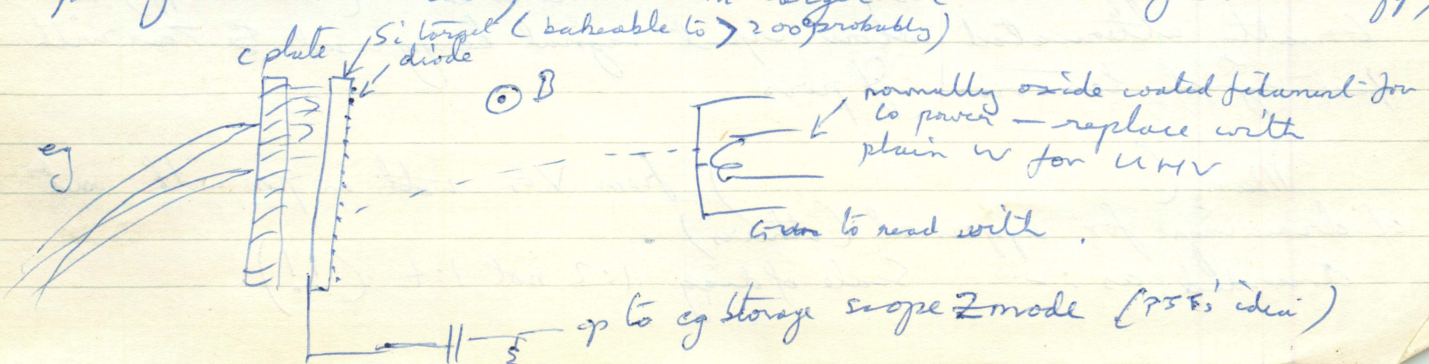 in target
Si target (bakeable to > 200° probably)
c plate
diode
B
normally oxide coated filament for
lo power – replace with
plain W for UHV
eg
Gun to read with.
op to eg storage scope Z mode (
idea)